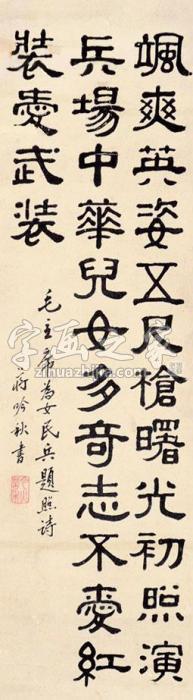 颯爽英姿五尺槍曙光初照演
兵場中華兒女多奇志不愛紅
裝愛武裝
毛主席為女民兵題照詩
蔣吟秋書
字画之家